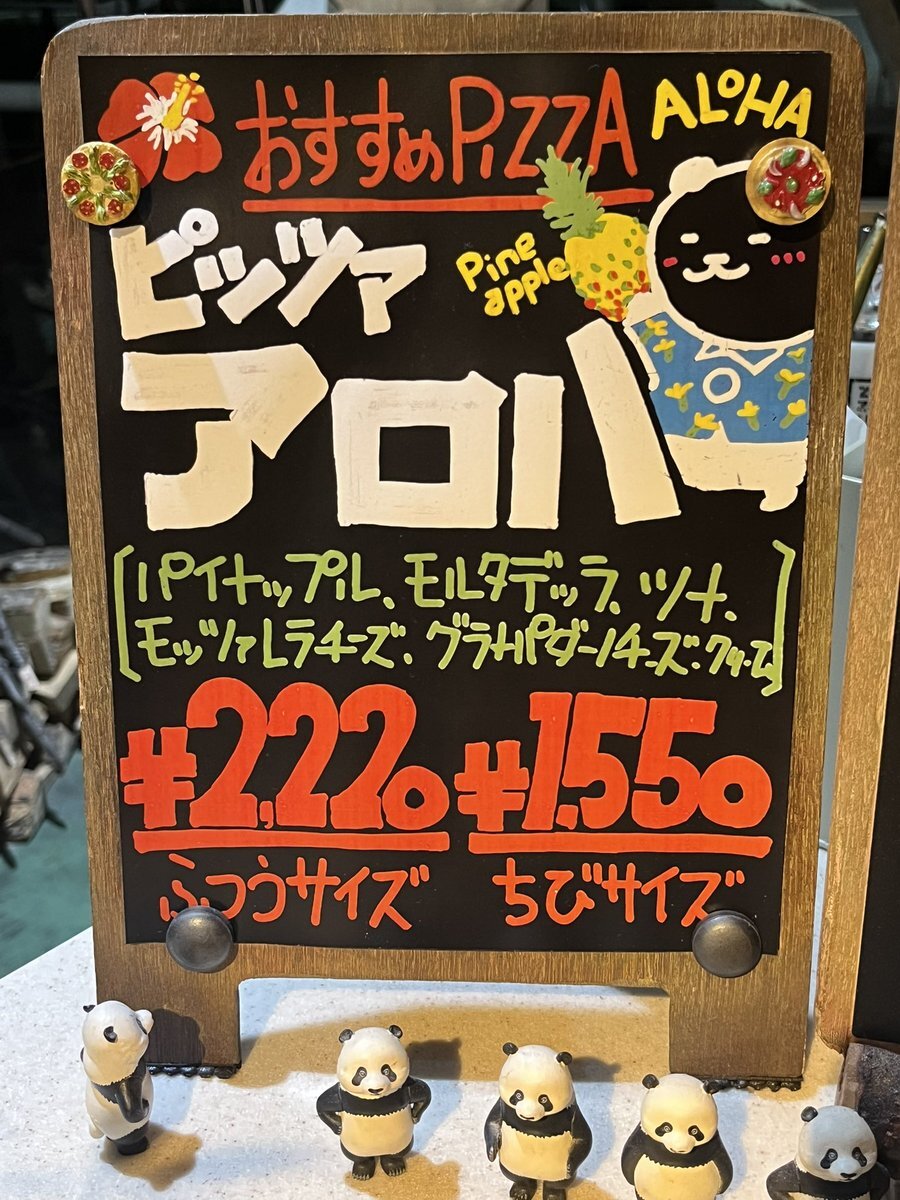 おすすめPIZZA
ALOHA
ピッツァ
Pine
apple
アロハ
[パイナップル、モルタデッラ、ツナ、
モッツァレラチーズ、グラナパダーノチーズ、クリーム]
¥2,220 ¥1,550
ふつうサイズ ちびサイズ